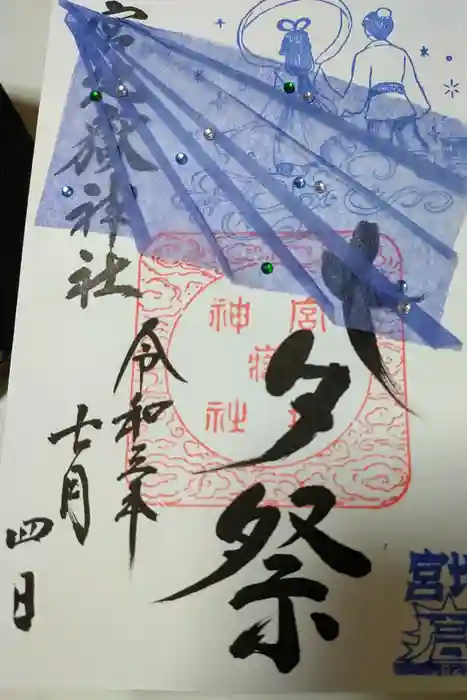 七夕祭
宮地嶽神社
令和三年
七月
四日
宮地嶽神社
宮地